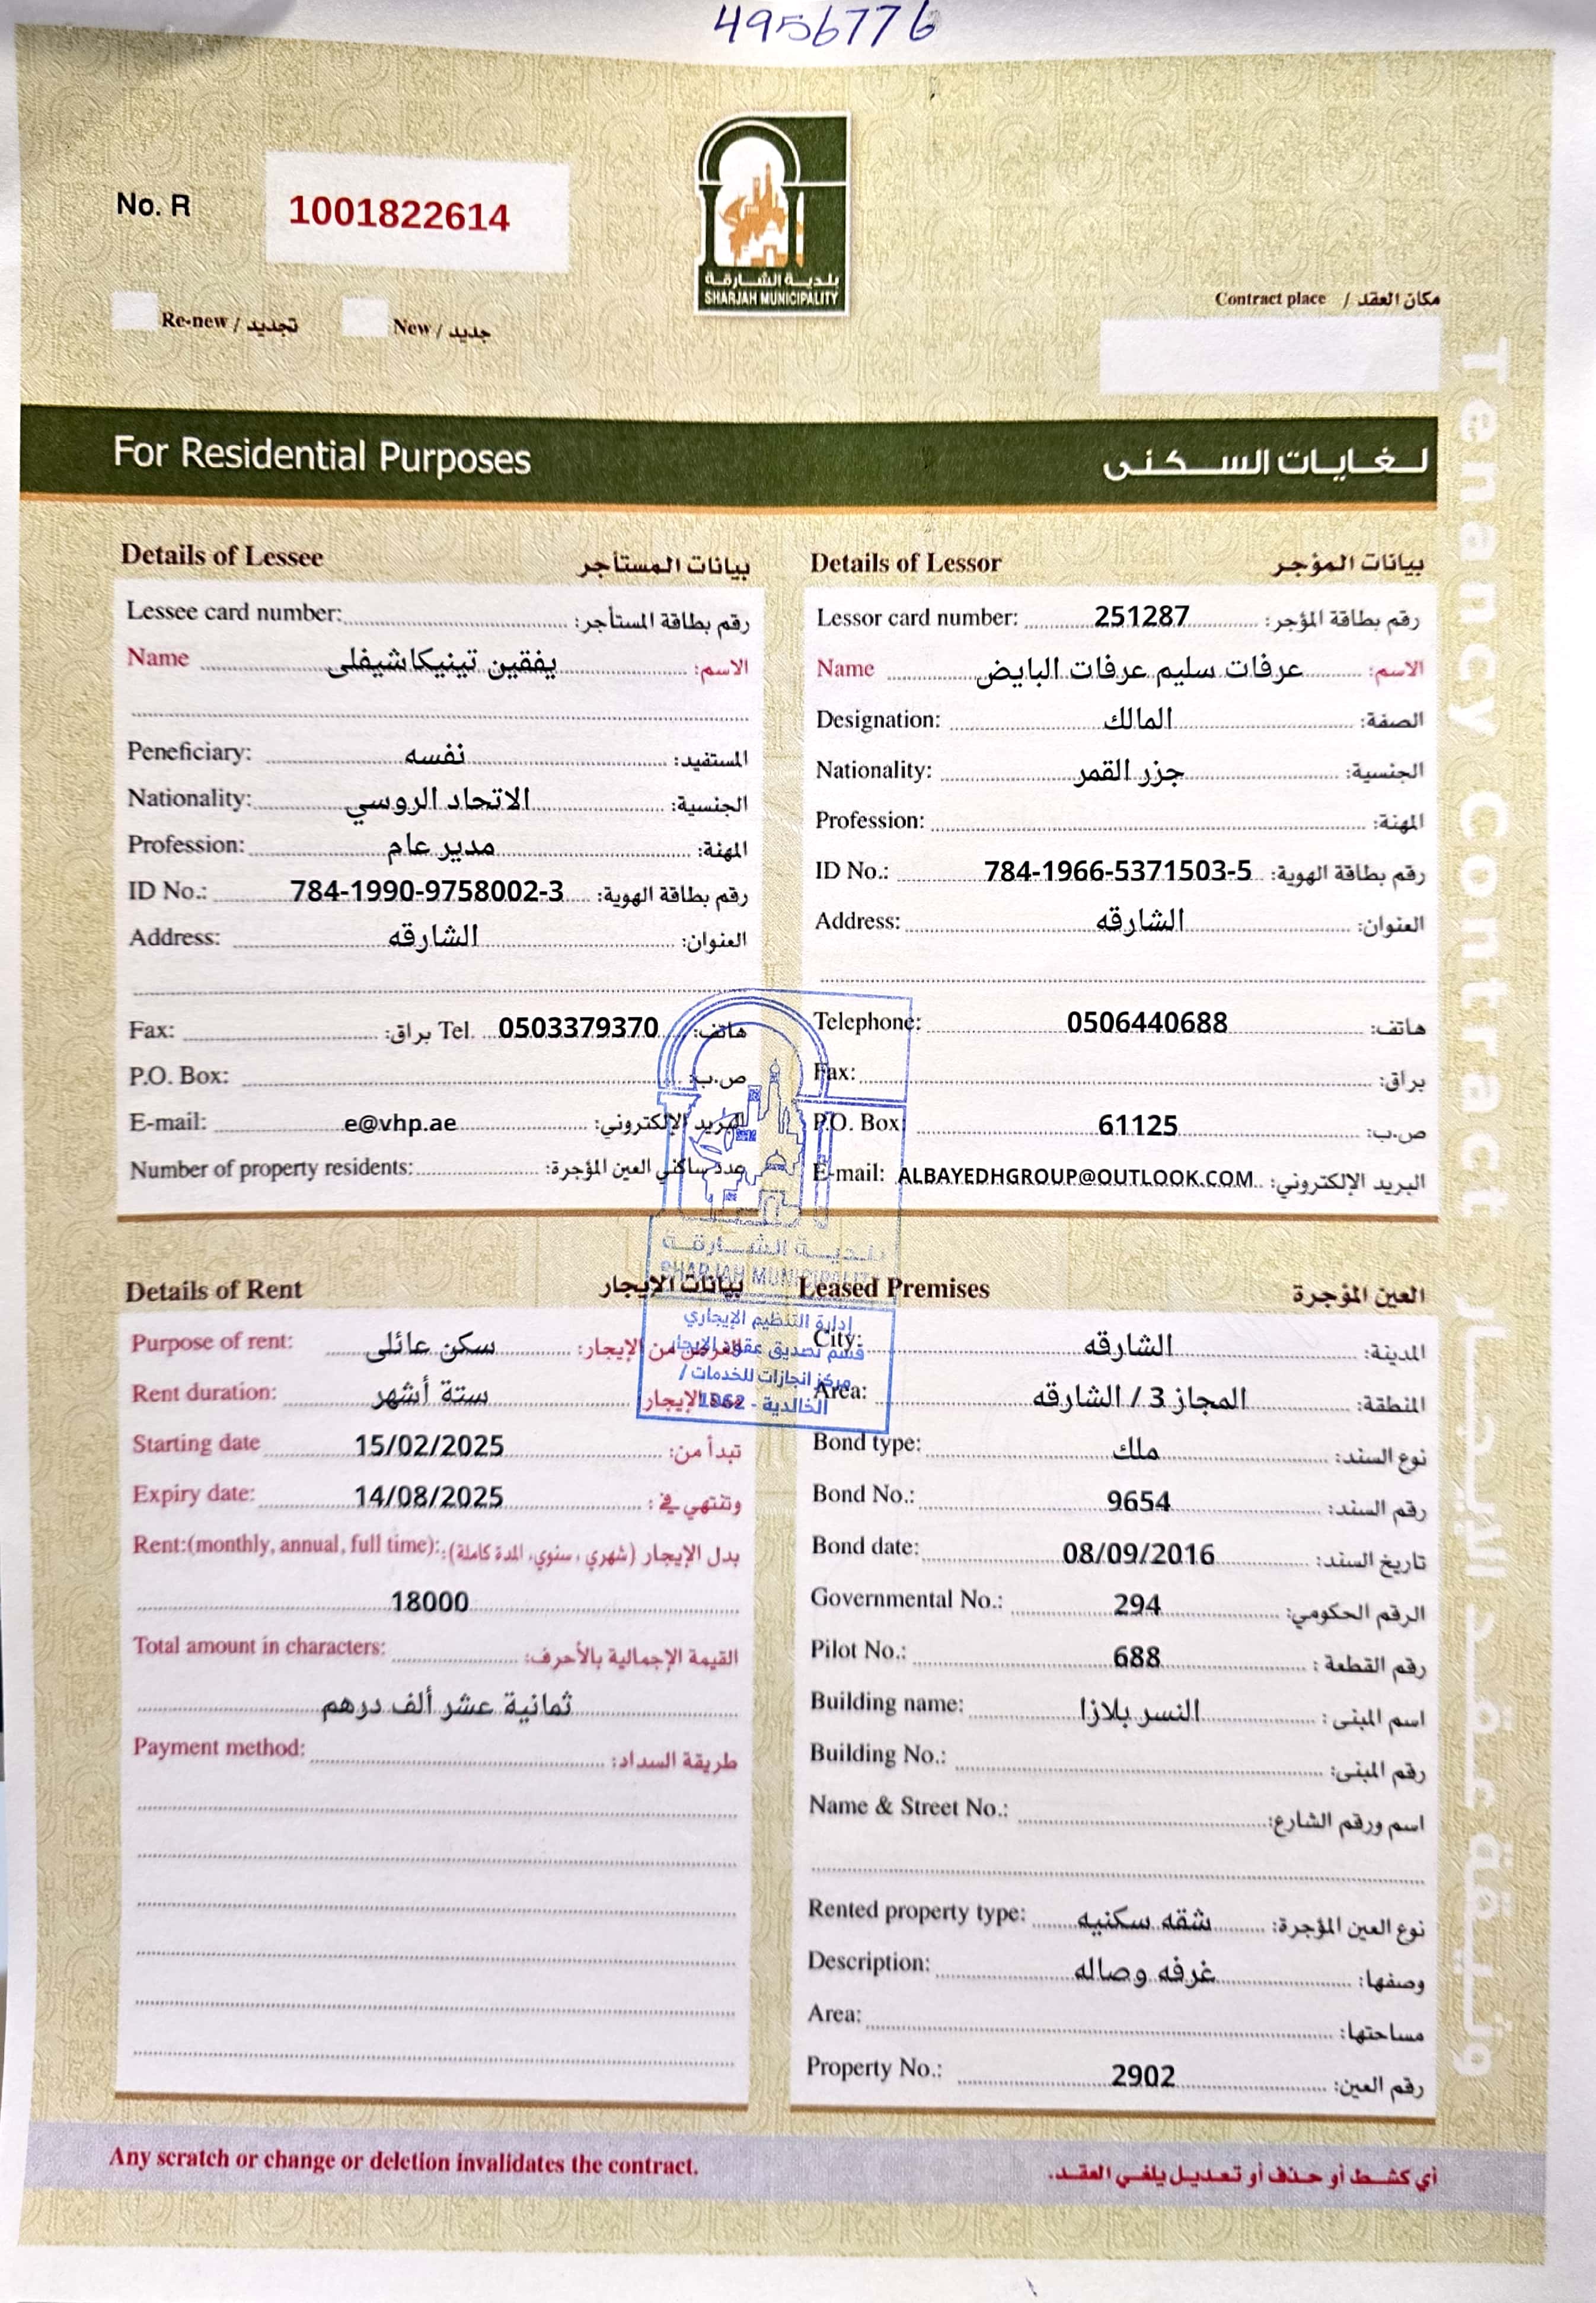 4956776
No. R 1001822614
بلدية الشارقة
SHARJAH MUNICIPALITY
Re-new / تجديد New / جديد
Contract place / مكان العقد
For Residential Purposes لغايات السكنى
Tenancy Contract وثيقة عقد الإيجار
Details of Lessee بيانات المستأجر
Lessee card number: رقم بطاقة المستأجر:
Name يفقين تينيكاشيفلى الاسم:
Peneficiary: نفسه المستفيد:
Nationality: الاتحاد الروسي الجنسية:
Profession: مدير عام المهنة:
ID No.: 784-1990-9758002-3 رقم بطاقة الهوية:
Address: الشارقه العنوان:
Fax: براق: Tel. 0503379370 هاتف:
P.O. Box: ص.ب:
E-mail: e@vhp.ae البريد الإلكتروني:
Number of property residents: عدد ساكني العين المؤجرة:
Details of Lessor بيانات المؤجر
Lessor card number: 251287 رقم بطاقة المؤجر:
Name عرفات سليم عرفات البايض الاسم:
Designation: المالك الصفة:
Nationality: جزر القمر الجنسية:
Profession: المهنة:
ID No.: 784-1966-5371503-5 رقم بطاقة الهوية:
Address: الشارقه العنوان:
Telephone: 0506440688 هاتف:
Fax: براق:
P.O. Box: 61125 ص.ب:
E-mail: ALBAYEDHGROUP@OUTLOOK.COM البريد الإلكتروني:
بلدية الشارقة
SHARJAH MUNICIPALITY
إدارة التنظيم الإيجاري
قسم تصديق عقود الإيجار
مركز انجازات للخدمات /
الخالدية - 1562
Details of Rent بيانات الإيجار
Purpose of rent: سكن عائلى الغرض من الإيجار:
Rent duration: ستة أشهر مدة الإيجار
Starting date 15/02/2025 تبدأ من:
Expiry date: 14/08/2025 وتنتهي في:
Rent:(monthly, annual, full time): بدل الإيجار (شهري، سنوي، المدة كاملة):
18000
Total amount in characters: القيمة الإجمالية بالأحرف:
ثمانية عشر ألف درهم
Payment method: طريقة السداد:
Leased Premises العين المؤجرة
City: الشارقه المدينة:
Area: المجاز 3 / الشارقه المنطقة:
Bond type: ملك نوع السند:
Bond No.: 9654 رقم السند:
Bond date: 08/09/2016 تاريخ السند:
Governmental No.: 294 الرقم الحكومي:
Pilot No.: 688 رقم القطعة :
Building name: النسر بلازا اسم المبنى :
Building No.: رقم المبنى:
Name & Street No.: اسم ورقم الشارع:
Rented property type: شقه سكنيه نوع العين المؤجرة:
Description: غرفه وصاله وصفها:
Area: مساحتها:
Property No.: 2902 رقم العين:
Any scratch or change or deletion invalidates the contract. أي كشط أو حذف أو تعديل يلغي العقد.